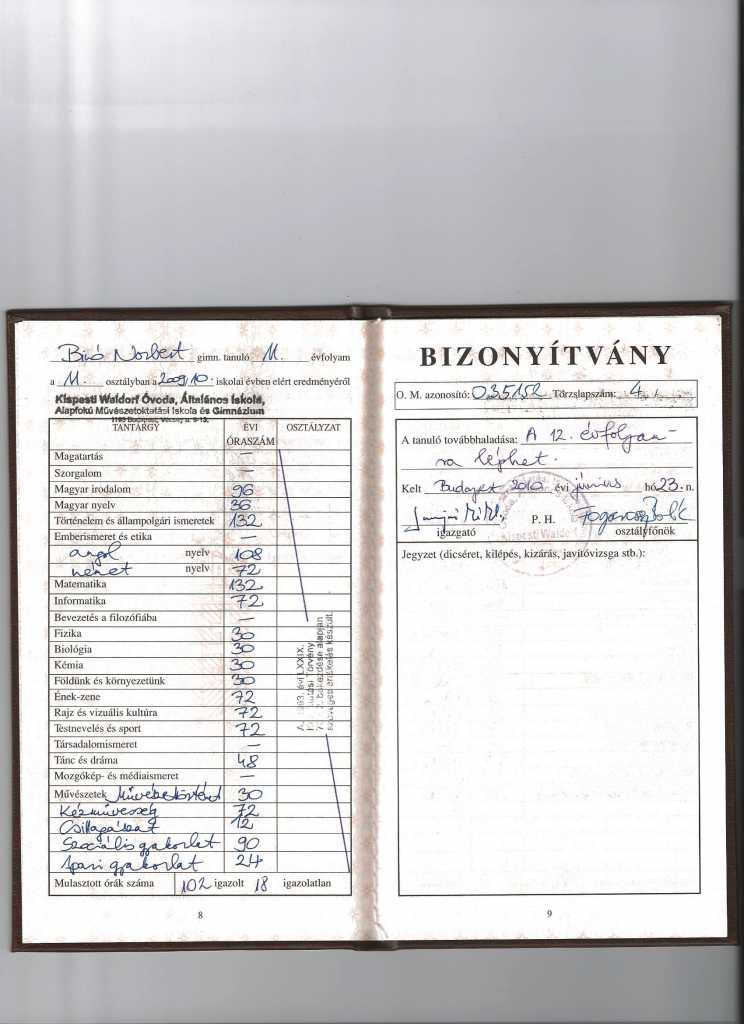 Biró Norbert gimn. tanuló 11. évfolyam
a 11. osztályban a 2009/10. iskolai évben elért eredményéről
Kispesti Waldorf Óvoda, Általános Iskola,
Alapfokú Művészetoktatási Iskola és Gimnázium
TANTÁRGY ÉVI ÓRASZÁM OSZTÁLYZAT
Magatartás —
Szorgalom —
Magyar irodalom 96
Magyar nyelv 36
Történelem és állampolgári ismeretek 132
Emberismeret és etika —
angol nyelv 108
német nyelv 72
Matematika 132
Informatika 72
Bevezetés a filozófiába —
Fizika 30
Biológia 30
Kémia 30
Földünk és környezetünk 30
Ének-zene 72
Rajz és vizuális kultúra 72
Testnevelés és sport 72
Társadalomismeret —
Tánc és dráma 48
Mozgókép- és médiaismeret —
Művészetek Művészettörténet 30
Kézművesség 72
Csillagászat 12
Szociális gyakorlat 90
Ipari gyakorlat 24
Mulasztott órák száma 102 igazolt 18 igazolatlan
A 1993. évi LXXIX.
szöveges értékelés készült.
8
BIZONYÍTVÁNY
O. M. azonosító: 035152 Törzslapszám: 4.
A tanuló továbbhaladása: A 12. évfolyam-
ra léphet.
Kelt Budapest, 2010. évi június hó 23. n.
P. H.
igazgató osztályfőnök
Kispesti Waldorf
Jegyzet (dicséret, kilépés, kizárás, javítóvizsga stb.):
9